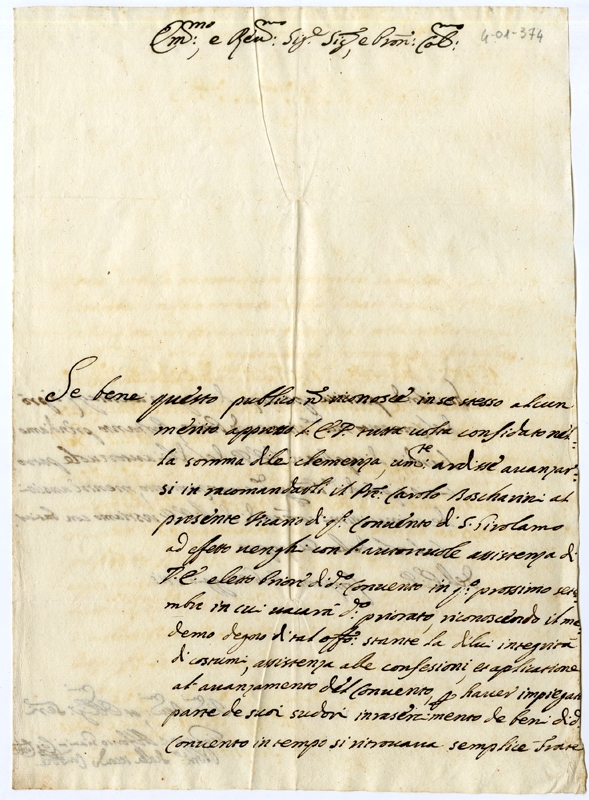 Em:mo, e Reu:mo Sig.r Sig.r, e Pron: Col:mo
4-01-374
Se bene questo publico nõ riconosce in se stesso alcun
merito appresso l'E.P. tutta uolta confidato nel=
la somma di le clemenza, um:te ardisse auanzar=
si in racomandarli il Pre: Carolo Boscharini al
presente Vicario di q.o Conuento di S. Girolamo
ad efeto uenghi con l'autoreuole assistenza di
V.E. eleto Priore di d.o Conuento in q.o prossimo sete=
mbre in cui uacarà d.o priorato, riconoscendo il me=
demo degno di tal offo: stante la di lui integrità
di costumi, assistenza a le confesioni, et aplicatione
al auanzamento del Conuento, p hauer impiegato
parte de suoi sudori in aserimento de beni di d.o
Conuento in tempo si ritrouaua semplice Frate